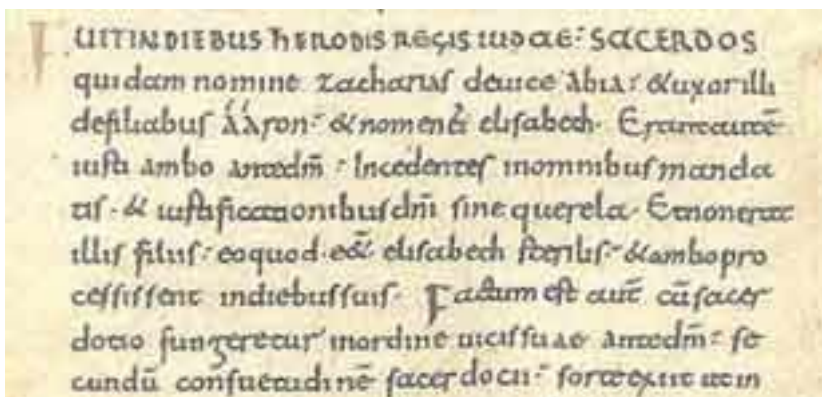 FUIT IN DIEBUS hERODIS REGIS IUDAE: SACERDOS
quidam nomine zacharias de uice abia: & uxor illi
de filiabus ááron: & nomen ei elisabeth. Erant autē
iusti ambo ante dm̄: Incedentes in omnibus manda
tis. & iustificationibus dni sine querela. Et non erat
illis filius: eo quod. eēt elisabeth sterilis: & ambo pro
cessissent in diebus suis. Factum est aut̄ cū sacer
dotio fungeretur in ordine uicis suae ante dm̄: se
cundū consuetudinē sacerdotii: sorte exiit ut in